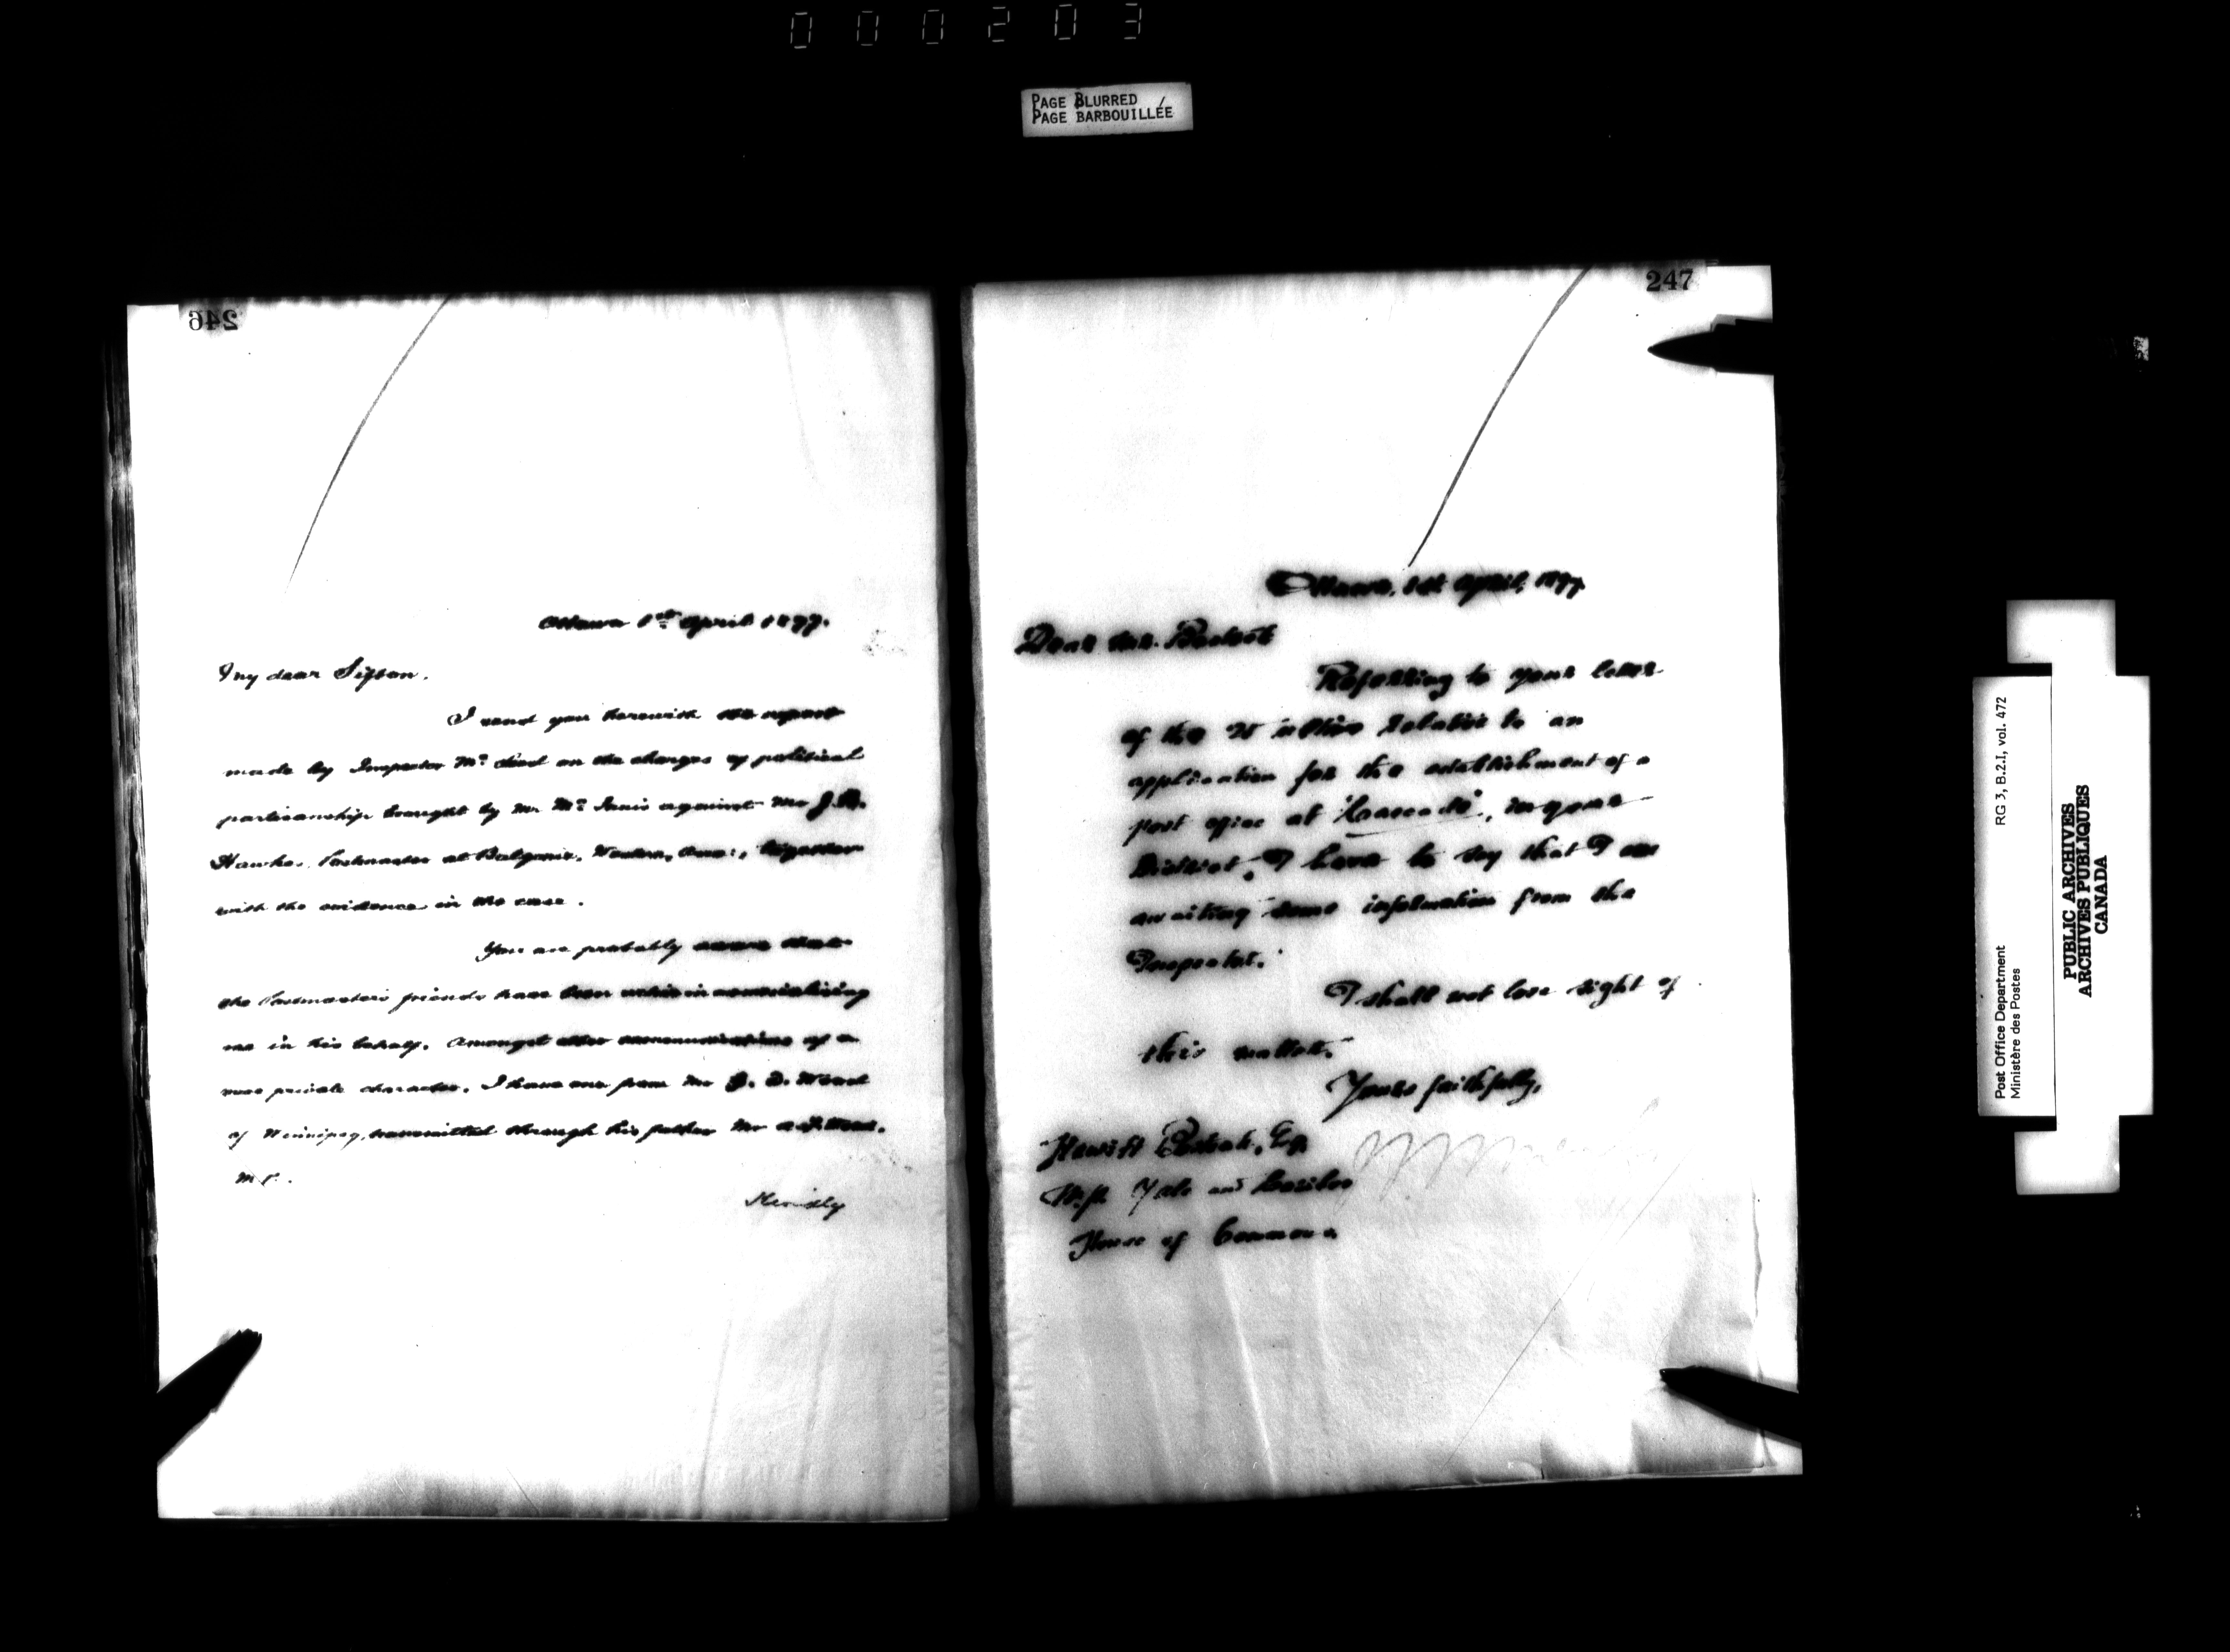 000203
PAGE BLURRED
PAGE BARBOUILLÉE
246
Ottawa 1st April 1897.
My dear Sifton.
I send you herewith the report
made by Inspector Mc Leod on the charges of political
partisanship brought by Mr Mc Innis against Mr J.R.
Hawkes Postmaster at Balgonie, Western, Assa:, together
with the evidence in the case.
You are probably aware that
the Postmaster's friends have been active in memorializing
me in his behalf. Amongst other communications of a
more private character, I have one from Mr D. Wood
of Winnipeg, transmitted through his father Mr Wood.
M.P.
247
Ottawa, 1st April, 1897.
Dear Mr. Bostock
Referring to your letter
of the 25 ultimo relative to an
application for the establishment of a
post office at "Cascade", in your
District, I have to say that I am
awaiting some information from the
Inspector.
I shall not lose sight of
this matter.
Yours faithfully,
Hewitt Bostock, Esq.
M.P. Yale and Cariboo
House of Commons
RG 3, B.2.I, vol. 472
Post Office Department
Ministère des Postes
PUBLIC ARCHIVES
ARCHIVES PUBLIQUES
CANADA